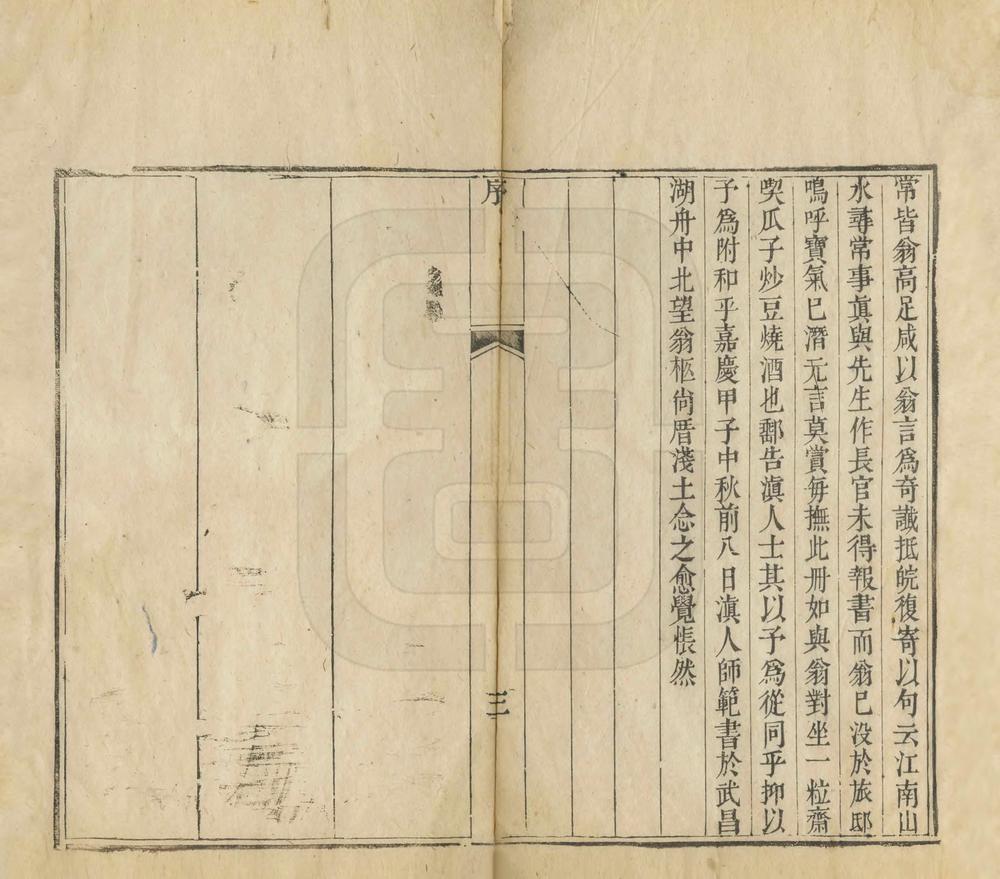 常皆翁高足咸以翁言爲奇讖抵皖復寄以句云江南山
水尋常事眞與先生作長官未得報書而翁已没於旅邸
嗚呼寶氣已潛元言莫賞每撫此册如與翁對坐一粒齋
喫瓜子炒豆燒酒也鄠告滇人士其以予爲從同乎抑以
予爲附和乎嘉慶甲子中秋前八日滇人師範書於武昌
湖舟中北望翁柩尙厝淺土念之愈覺悵然
序
三